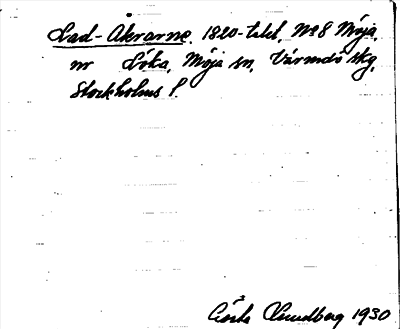 Lad-Åkrarne, 1820-talet, Nº 8 Möja,
nr Löka, Möja sn, Värmdö skg,
Stockholms l.
Gösta Lundberg 1930